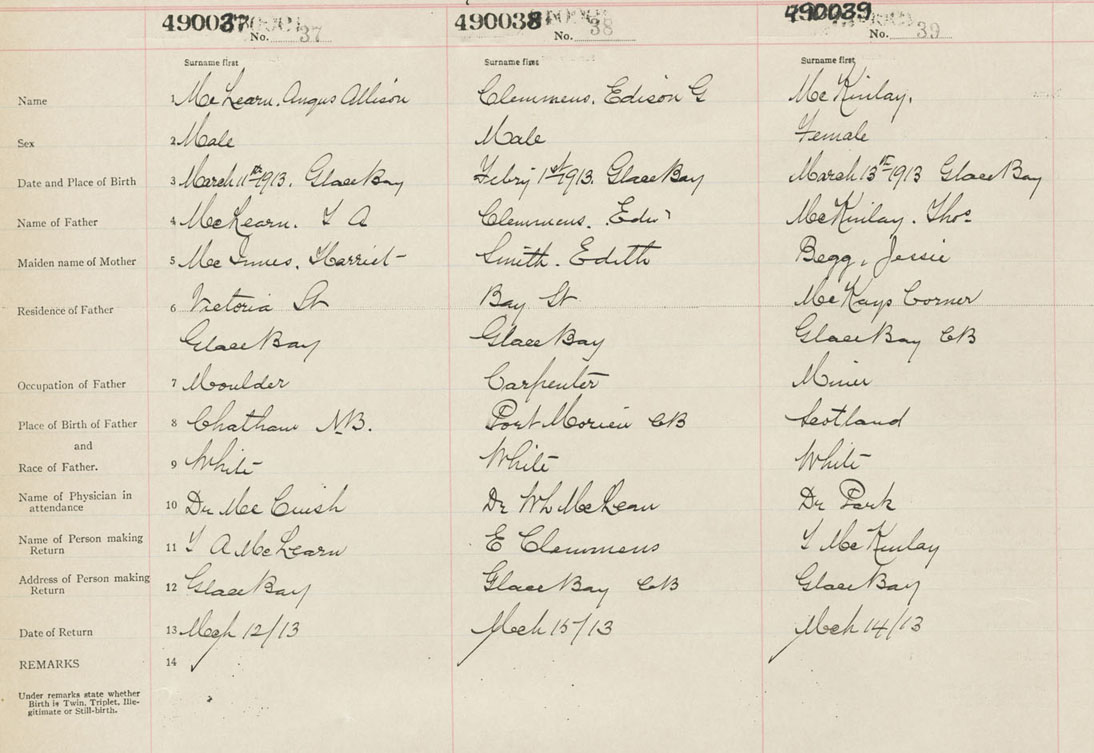 490037 490038 490039
No. 37 No. 38 No. 39
Surname first Surname first Surname first
Name 1 McLearn, Angus Allison Clemmens, Edison G McKinlay,
Sex 2 Male Male Female
Date and Place of Birth 3 March 11th 1913. Glace Bay Febry 1st 1913. Glace Bay March 13th 1913 Glace Bay
Name of Father 4 McLearn. T A Clemmens. Edw McKinlay. Thos
Maiden name of Mother 5 McInnes, Harriet Smith. Edith Begg, Jessie
Residence of Father 6 Victoria St Bay St McKays Corner
Glace Bay Glace Bay Glace Bay CB
Occupation of Father 7 Moulder Carpenter Miner
Place of Birth of Father 8 Chatham N.B. Port Morien CB Scotland
and
Race of Father. 9 White White White
Name of Physician in
attendance 10 Dr McCuish Dr Wm McLean Dr Park
Name of Person making
Return 11 T A McLearn E Clemmens T McKinlay
Address of Person making
Return 12 Glace Bay Glace Bay CB Glace Bay
Date of Return 13 Mch 12/13 Mch 15/13 Mch 14/13
REMARKS 14
Under remarks state whether
Birth is Twin, Triplet, Ille-
gitimate or Still-birth.